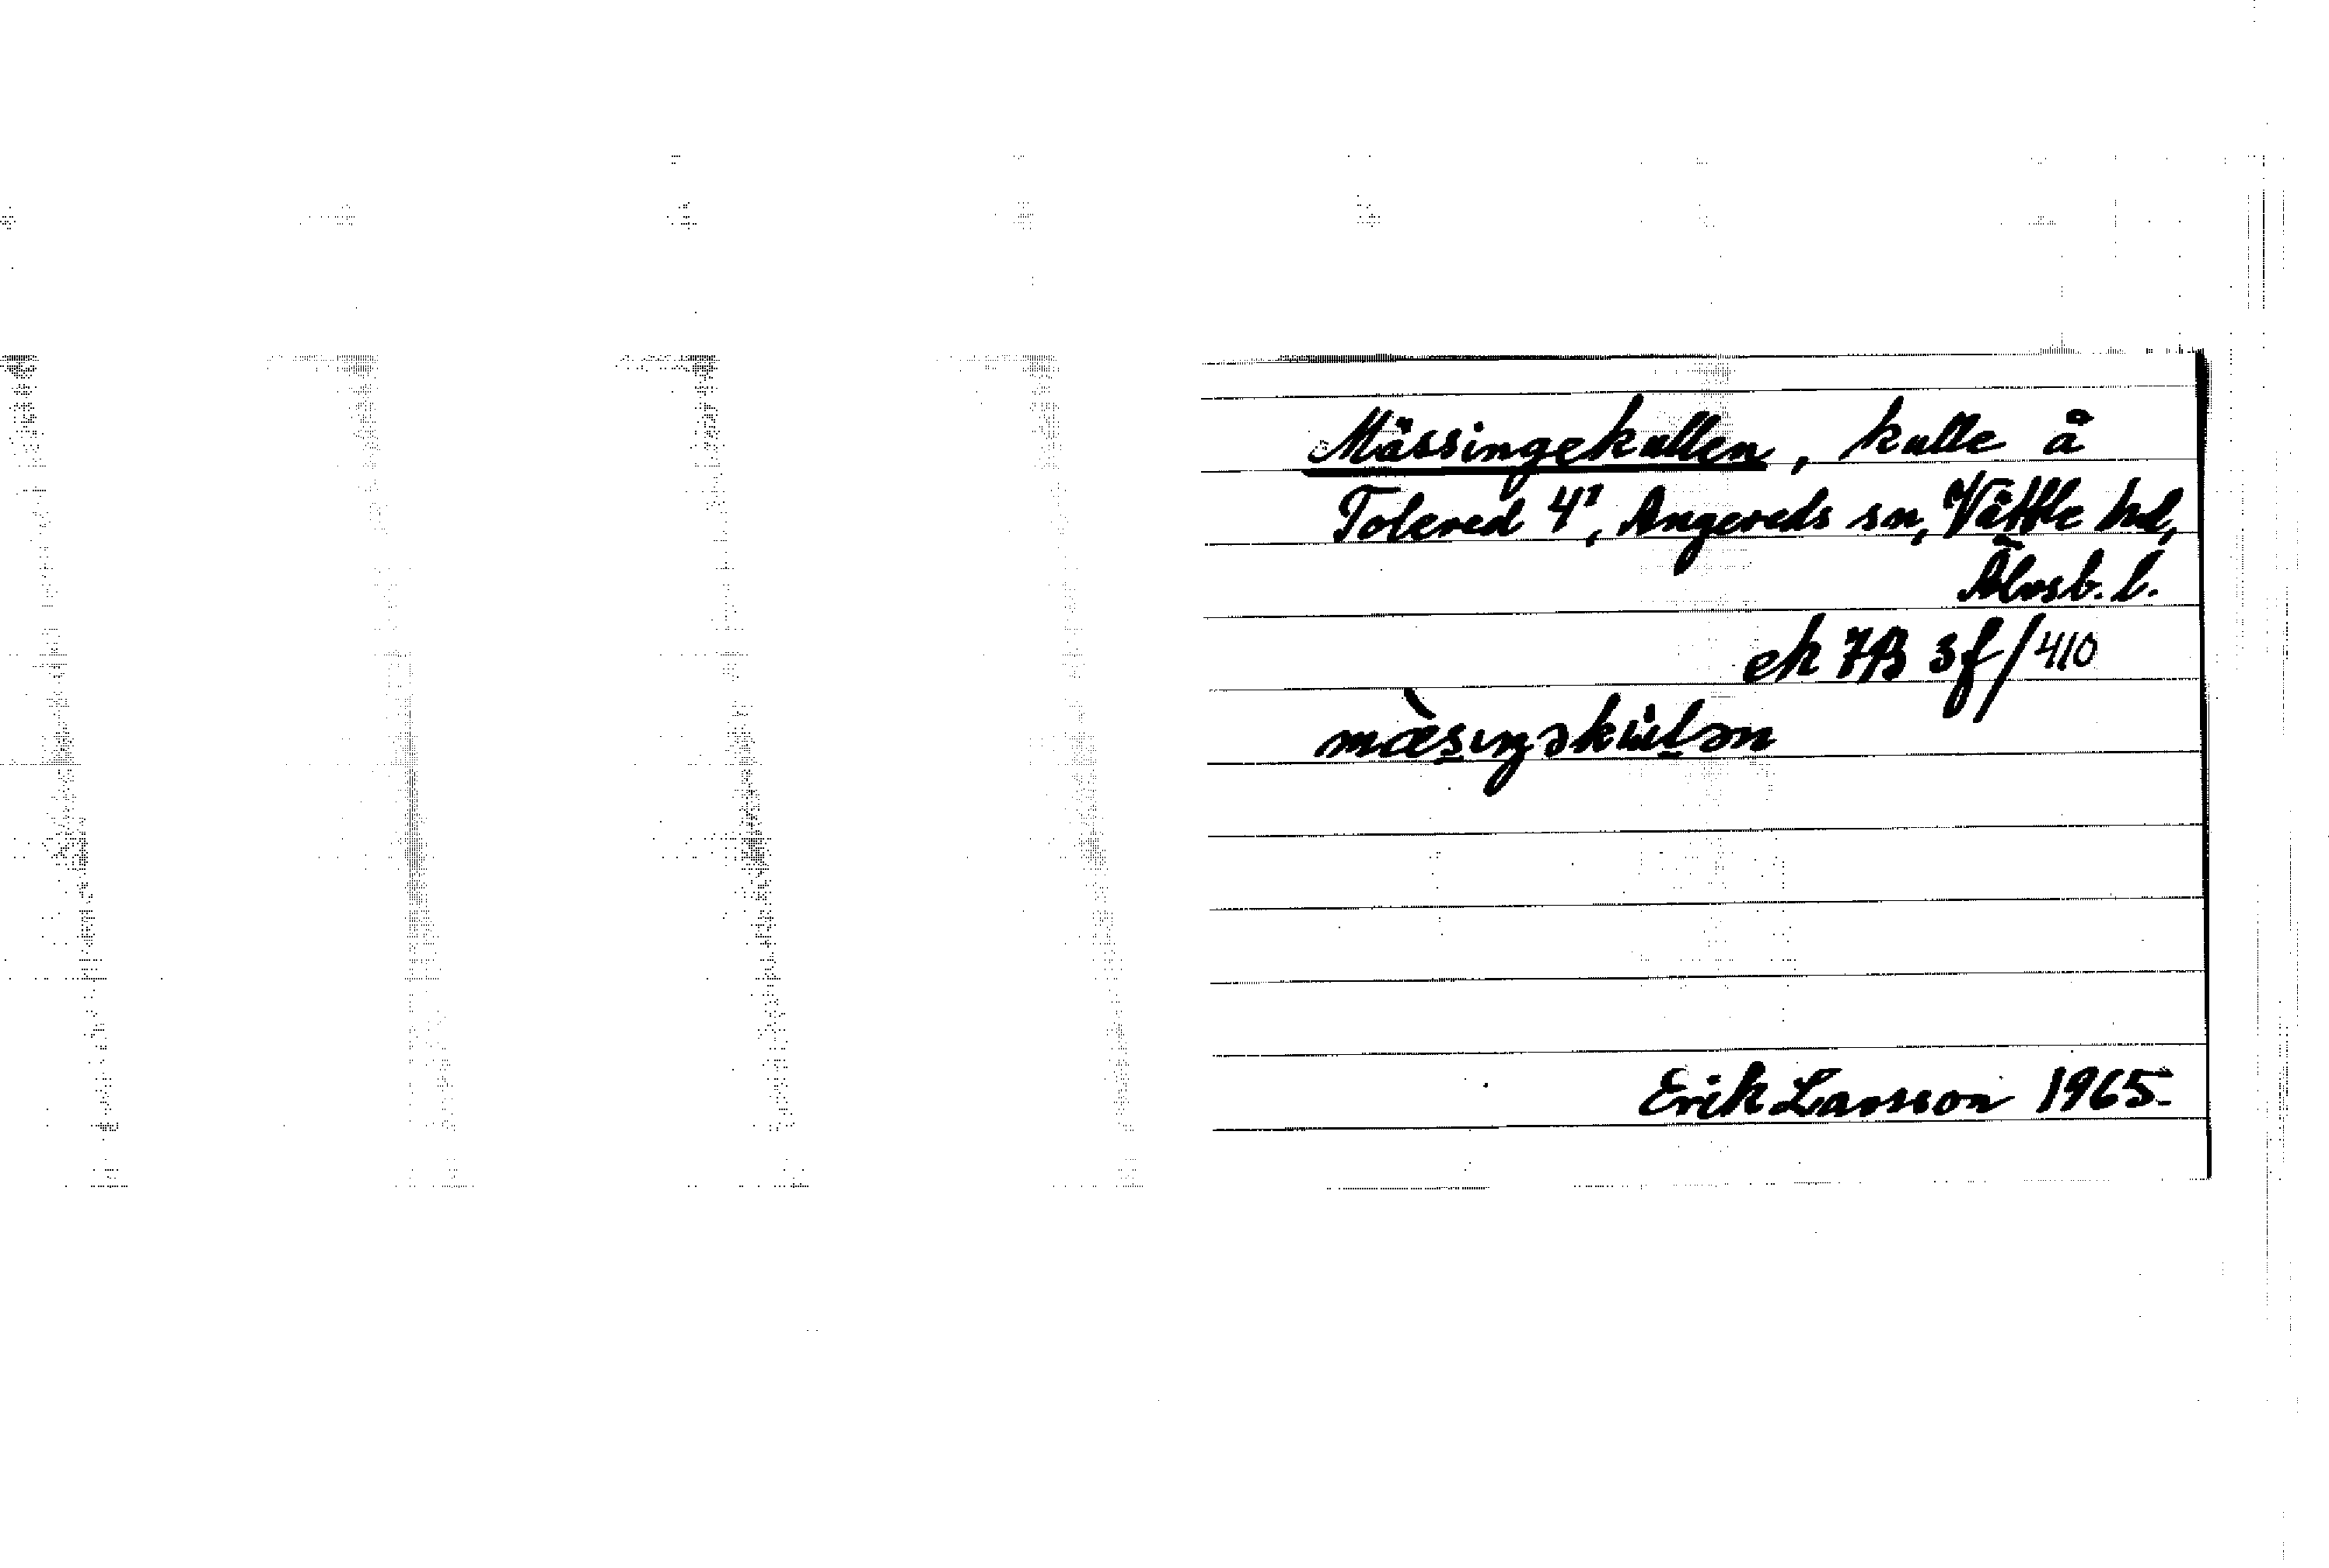 Mässingekullen, kulle å
Tolered 4¹, Angereds sn, Vättle hd,
Älvsb. l.
ek 7B 3f/410
mæ̀sıŋəku̇lən
Erik Larsson 1965.